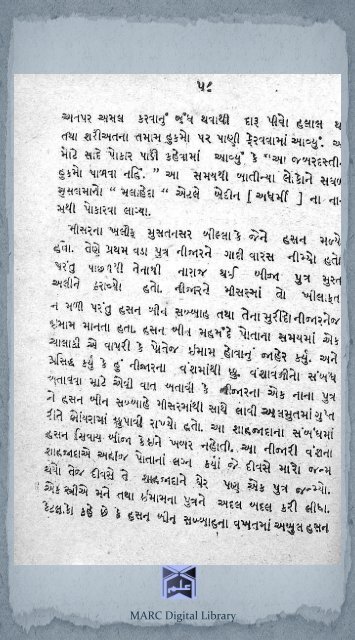 ૫૮
અનપર અમલ કરવાનું બંધ થવાથી દારૂ પીવો હલાલ થ
તથા શરીઅતના તમામ હુકમો પર પાણી ફેરવવામાં આવ્યું. અ
માટે સાદ પોકાર પાડી કહેવામાં આવ્યું કે "આ જબરદસ્તી
હુકમો પાળવા નહિં." આ સમયથી બાતીન્યા લોકોને સઘળ
મુસલમાનો "મલાહેદા" એટલે બેદીન [ અધર્મી ] ના ના
મથી પોકારવા લાગ્યા.
મીસરના ખલીફ મુસતનસર બીલ્લા કે જેને હસન મળ્યો
હતો. તેણે પ્રથમ વડા પુત્ર નીજારને ગાદી વારસ નીમ્યો હતો
પરંતુ પાછળથી તેનાથી નારાજ થઈ બીજા પુત્ર મુસ્ત
અલીને ઠરાવ્યો હતો. નીજારને મીસરમાં તો ખીલાફત
ન મળી પરંતુ હસન બીન સબ્બાહ તથા તેના મુરીદો નીજારનેજ
ઈમામ માનતા હતા. હસન બીન મહમદે પોતાના સમયમાં એક
ચાલાકી એ વાપરી કે પોતેજ ઈમામ હોવાનું જાહેર કર્યું. અને
પ્રસિદ્ધ કર્યું કે હું નીજારના વંશમાંથી છું. વંશાવળીનો સંબંધ
બતાવવા માટે એવી વાત બતાવી કે નીજારના એક નાના પુત્ર
ને હસન બીન સબ્બાહે મીસરમાંથી સાથે લાવી અલમુતમાં ગુપ્ત
રીતે ભોંયરામાં છુપાવી રાખ્યો હતો. આ શાહજાદાના સંબંધમાં
હસન સિવાય બીજા કોઇને ખબર નહોતી. આ નીજારી વંશના
શાહજાદાએ અહીંજ પોતાનાં લગ્ન કર્યાં જે દીવસે મારો જન્મ
થયો તેજ દીવસે તે શાહજાદાને ઘેર પણ એક પુત્ર જન્મ્યો.
એક સ્ત્રીએ મને તથા ઈમામના પુત્રને અદલ બદલ કરી લીધા.
કેટલાકો કહે છે કે હસન બીન સબ્બાહના વખતમાં અબુલ હસન
MARC Digital Library